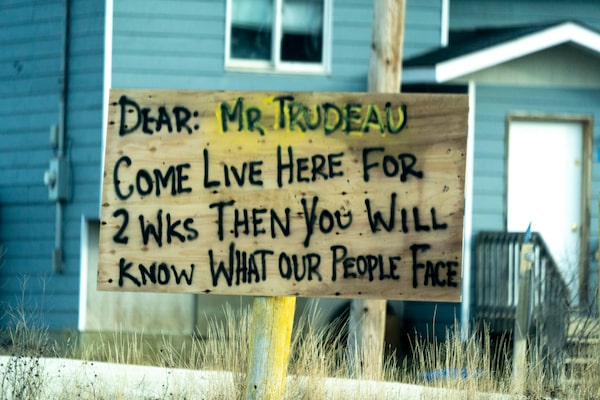 DEAR: MR TRUDEAU
COME LIVE HERE FOR
2 WKS THEN YOU WILL
KNOW WHAT OUR PEOPLE FACE